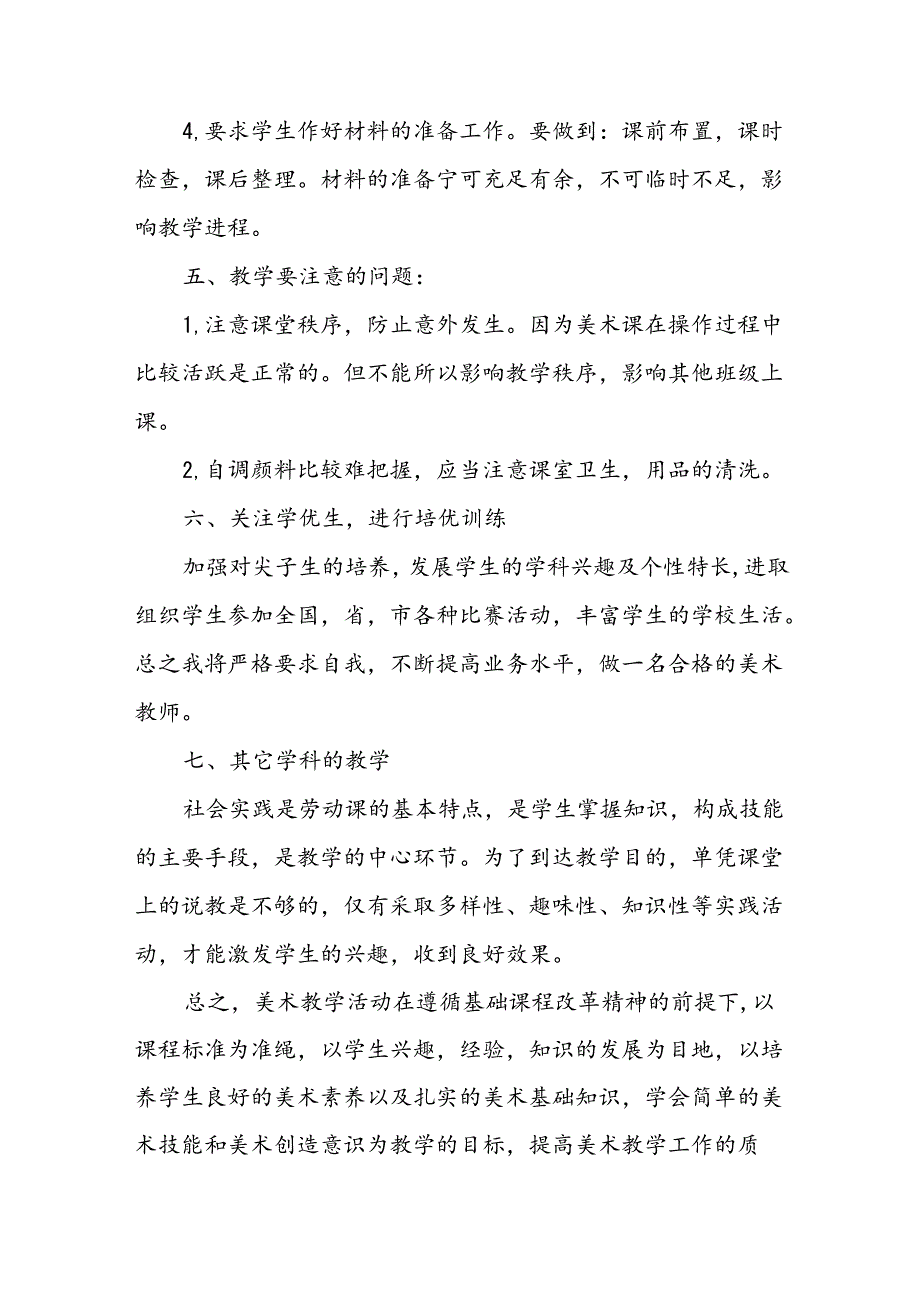 4,要求学生作好材料的准备工作。要做到：课前布置，课时
检查，课后整理。材料的准备宁可充足有余，不可临时不足，影
响教学进程。
五、教学要注意的问题：
1,注意课堂秩序，防止意外发生。因为美术课在操作过程中
比较活跃是正常的。但不能所以影响教学秩序，影响其他班级上
课。
2,自调颜料比较难把握，应当注意课室卫生，用品的清洗。
六、关注学优生，进行培优训练
加强对尖子生的培养,发展学生的学科兴趣及个性特长,进取
组织学生参加全国，省，市各种比赛活动，丰富学生的学校生活。
总之我将严格要求自我，不断提高业务水平，做一名合格的美术
教师。
七、其它学科的教学
社会实践是劳动课的基本特点，是学生掌握知识，构成技能
的主要手段，是教学的中心环节。为了到达教学目的，单凭课堂
上的说教是不够的，仅有采取多样性、趣味性、知识性等实践活
动，才能激发学生的兴趣，收到良好效果。
总之，美术教学活动在遵循基础课程改革精神的前提下,以
课程标准为准绳，以学生兴趣，经验，知识的发展为目地，以培
养学生良好的美术素养以及扎实的美术基础知识，学会简单的美
术技能和美术创造意识为教学的目标，提高美术教学工作的质